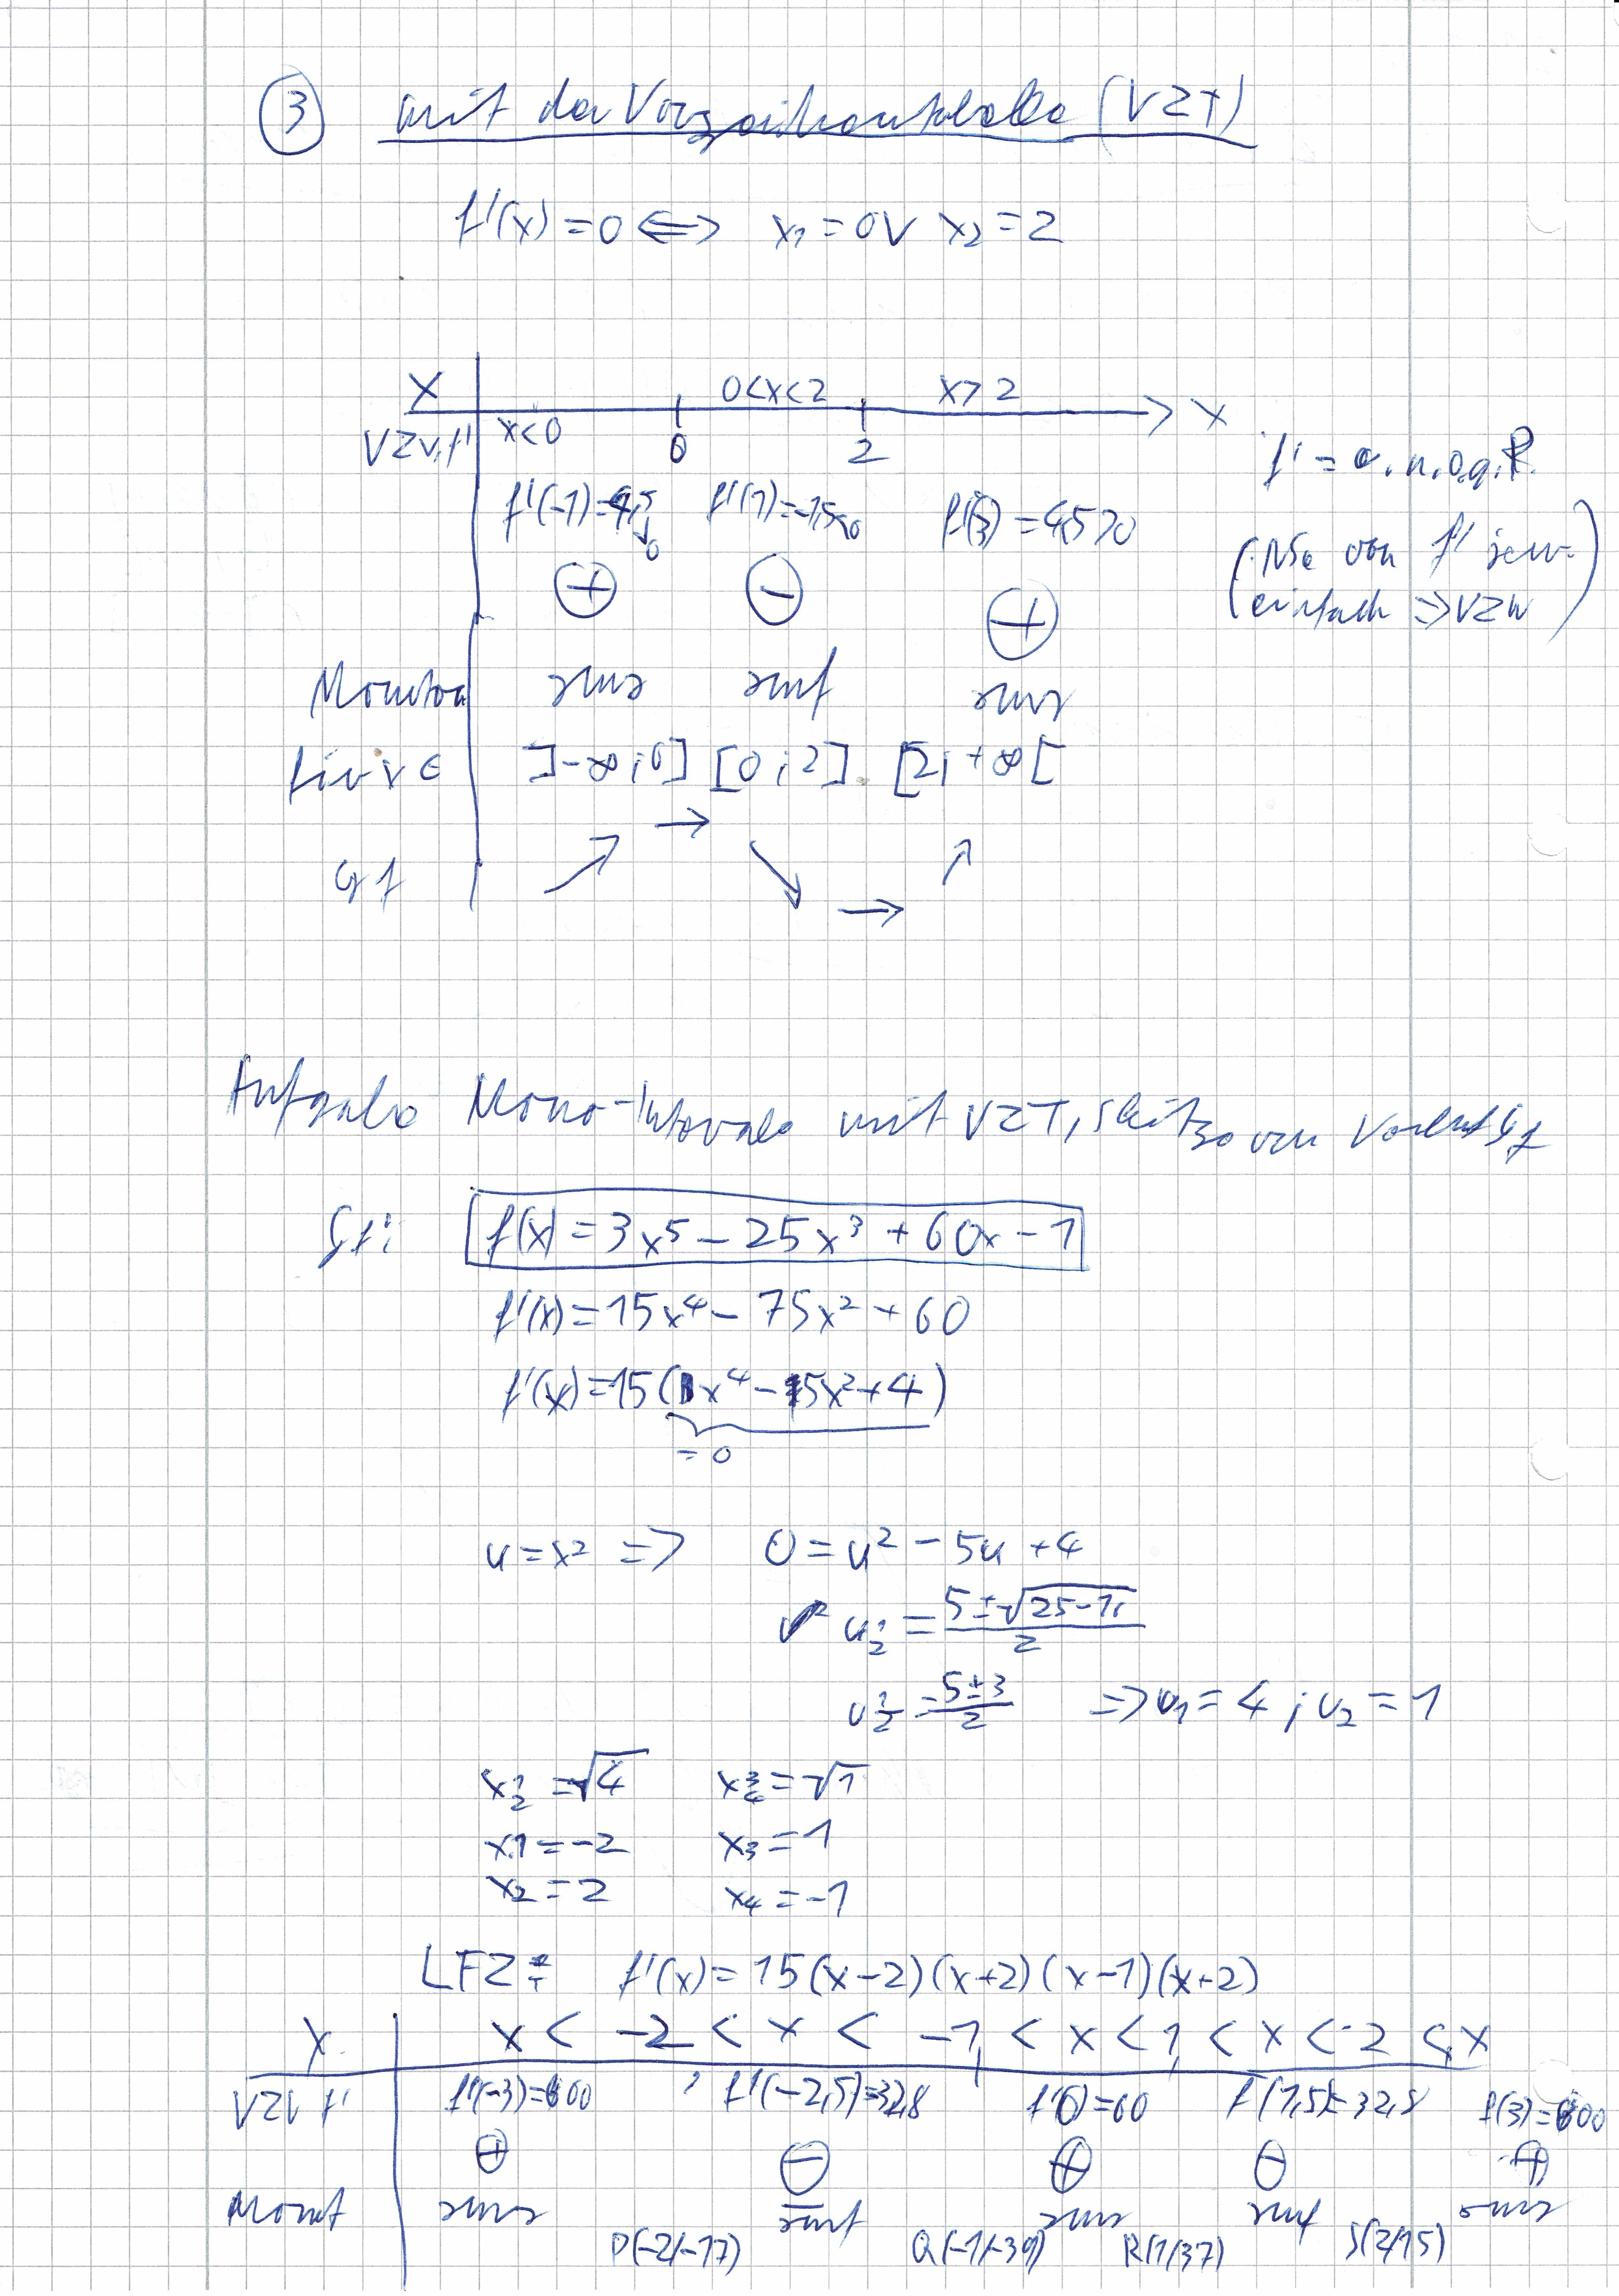 ③ mit der Vorzeichentabelle (VZT)
f'(x) = 0 <=> x₁ = 0 V x₂ = 2
X 0<x<2 x>2
VZ v. f' x<0 0 2 x
f'(-1)=4,5>0 f'(1)=-1,5<0 f'(3)=4,5>0
f' = o.n.o.g.P.
(NSt von f' jew.
einfach => VZW)
⊕ ⊖ ⊕
Monoton sms smf sms
für x ∈ ]-∞;0] [0;2] [2;+∞[
Gf ↗ → ↘ → ↗
Aufgabe Mono-Intervale mit VZT, Skitze von Verlauf Gf
Gf: f(x) = 3x⁵ - 25x³ + 60x - 1
f'(x) = 15x⁴ - 75x² + 60
f'(x) = 15(1x⁴ - 5x² + 4)
= 0
u = x² => 0 = u² - 5u + 4
u½ = (5 ± √(25-16))/2
u½ = (5±3)/2 => u₁ = 4 ; u₂ = 1
x½ = √4 x¾ = √1
x1 = -2 x₃ = 1
x₂ = 2 x₄ = -1
LFZ: f'(x) = 15(x-2)(x+2)(x-1)(x+2)
X x < -2 < x < -1 < x < 1 < x < 2 < x
VZV f' f'(-3)=600 f'(-2,5)=32,8 f'(0)=60 f(1,5)=-32,8 f(3)=600
⊕ ⊖ ⊕ ⊖ ⊕
Monot sms smf sms smf sms
P(-2/-17) Q(-1/-39) R(1/37) S(2/15)